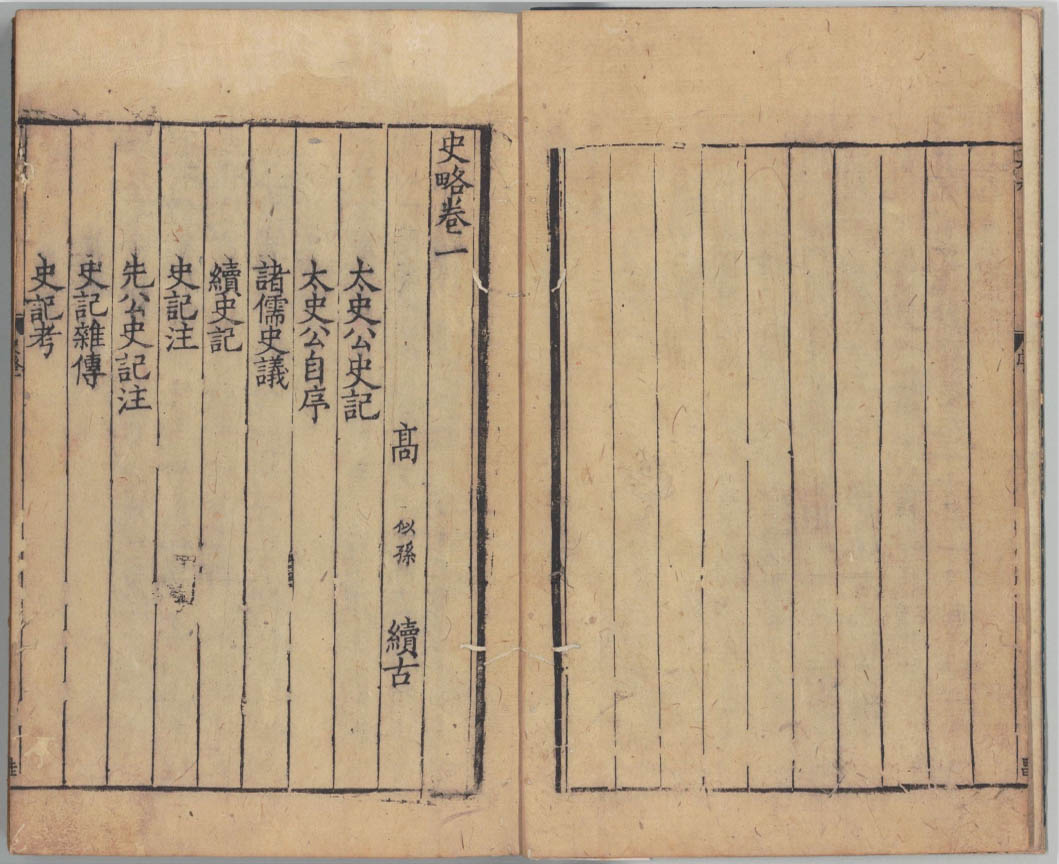 史略卷一
高 似孫 續古
太史公史記
太史公自序
諸儒史議
續史記
史記注
先公史記注
史記雜傳
史記考